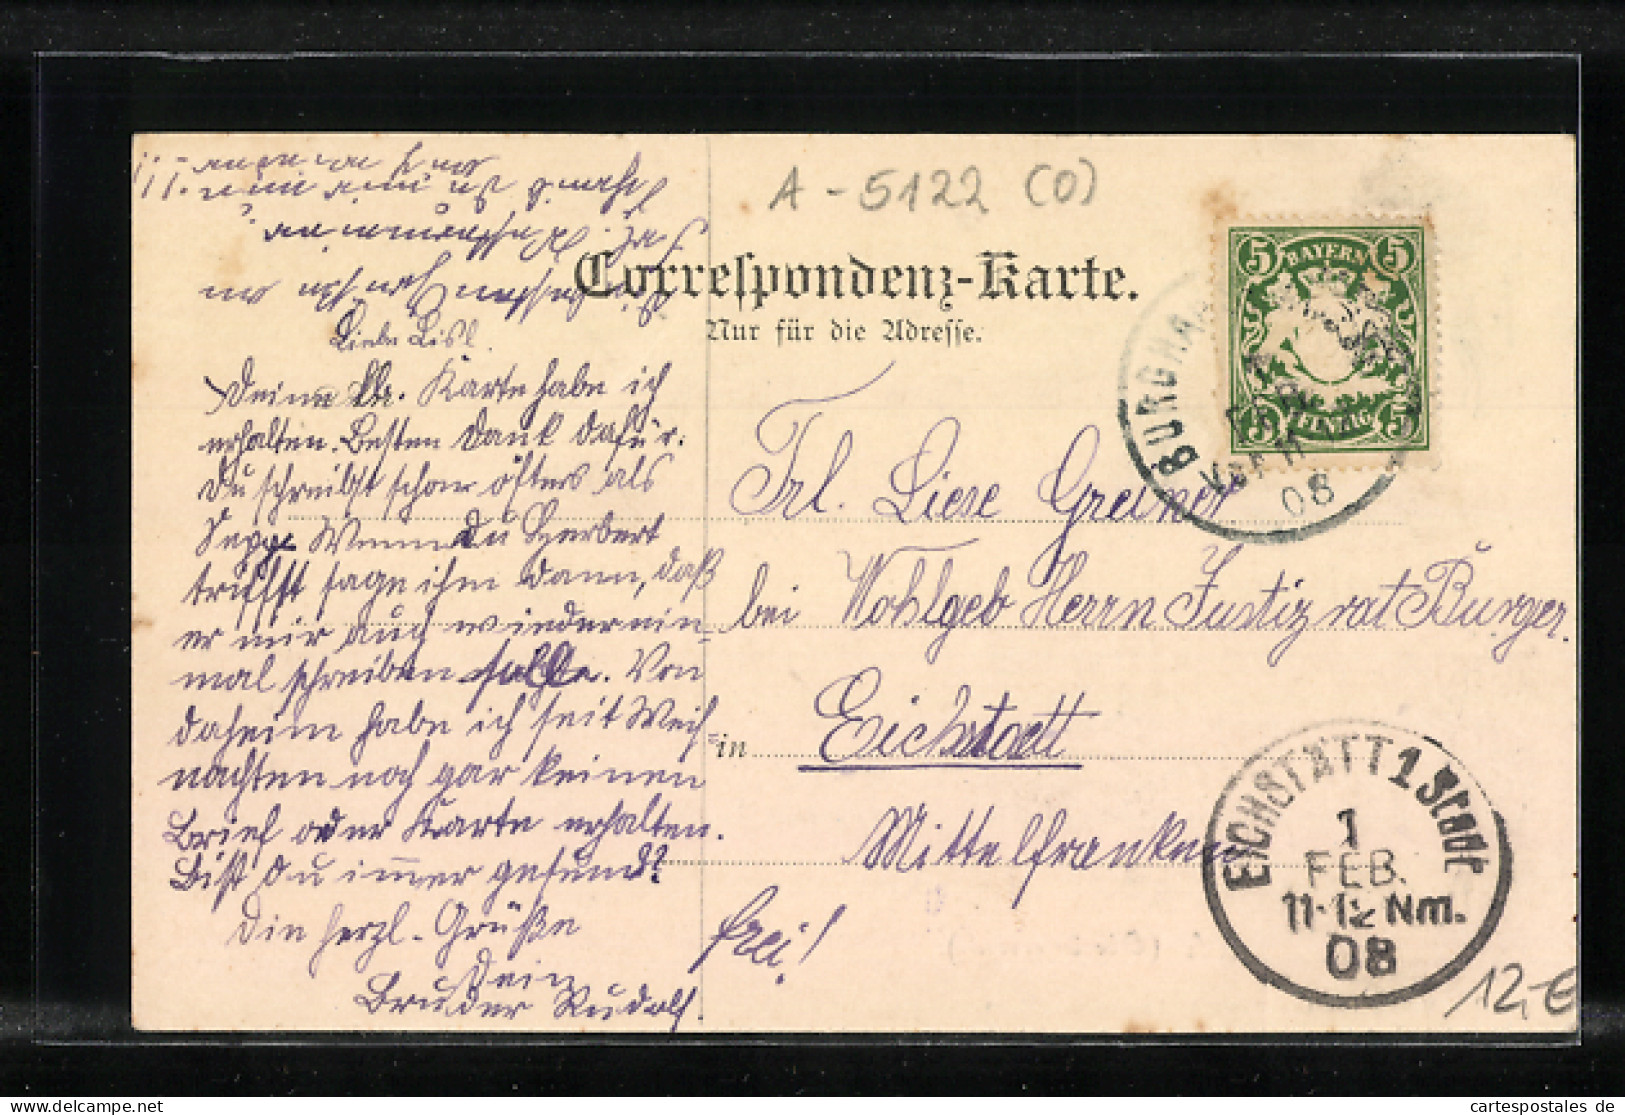 A-5122 (0)
Correspondenz-Karte.
Nur für die Adresse.
BAYERN
5 5
5 PFENNIG 5
BURGHA
VOR 11
08
Liebe Lisl
Deine lb. Karte habe ich
erhalten. Besten Dank dafür.
Du schreibst schon öfters als
Sepp. Wenn Du Herbert
triffst sage ihm dann, daß
er mir auch wieder ein-
mal schreiben solle. Von
daheim habe ich seit Weih-
nachten noch gar keinen
Brief oder Karte erhalten.
Bist Du immer gesund?
Die herzl. Grüße
Dein
Bruder Rudolf.
Frl. Liese Greiner
bei Wohlgeb Herrn Justizrat Burger.
in Eichstaett
Mittelfranken
frei!
EICHSTÄTT 1 Stadt
1
FEB.
11-12 Nm.
08
12,-€
Ansichtskarten-Center
cartespostales de